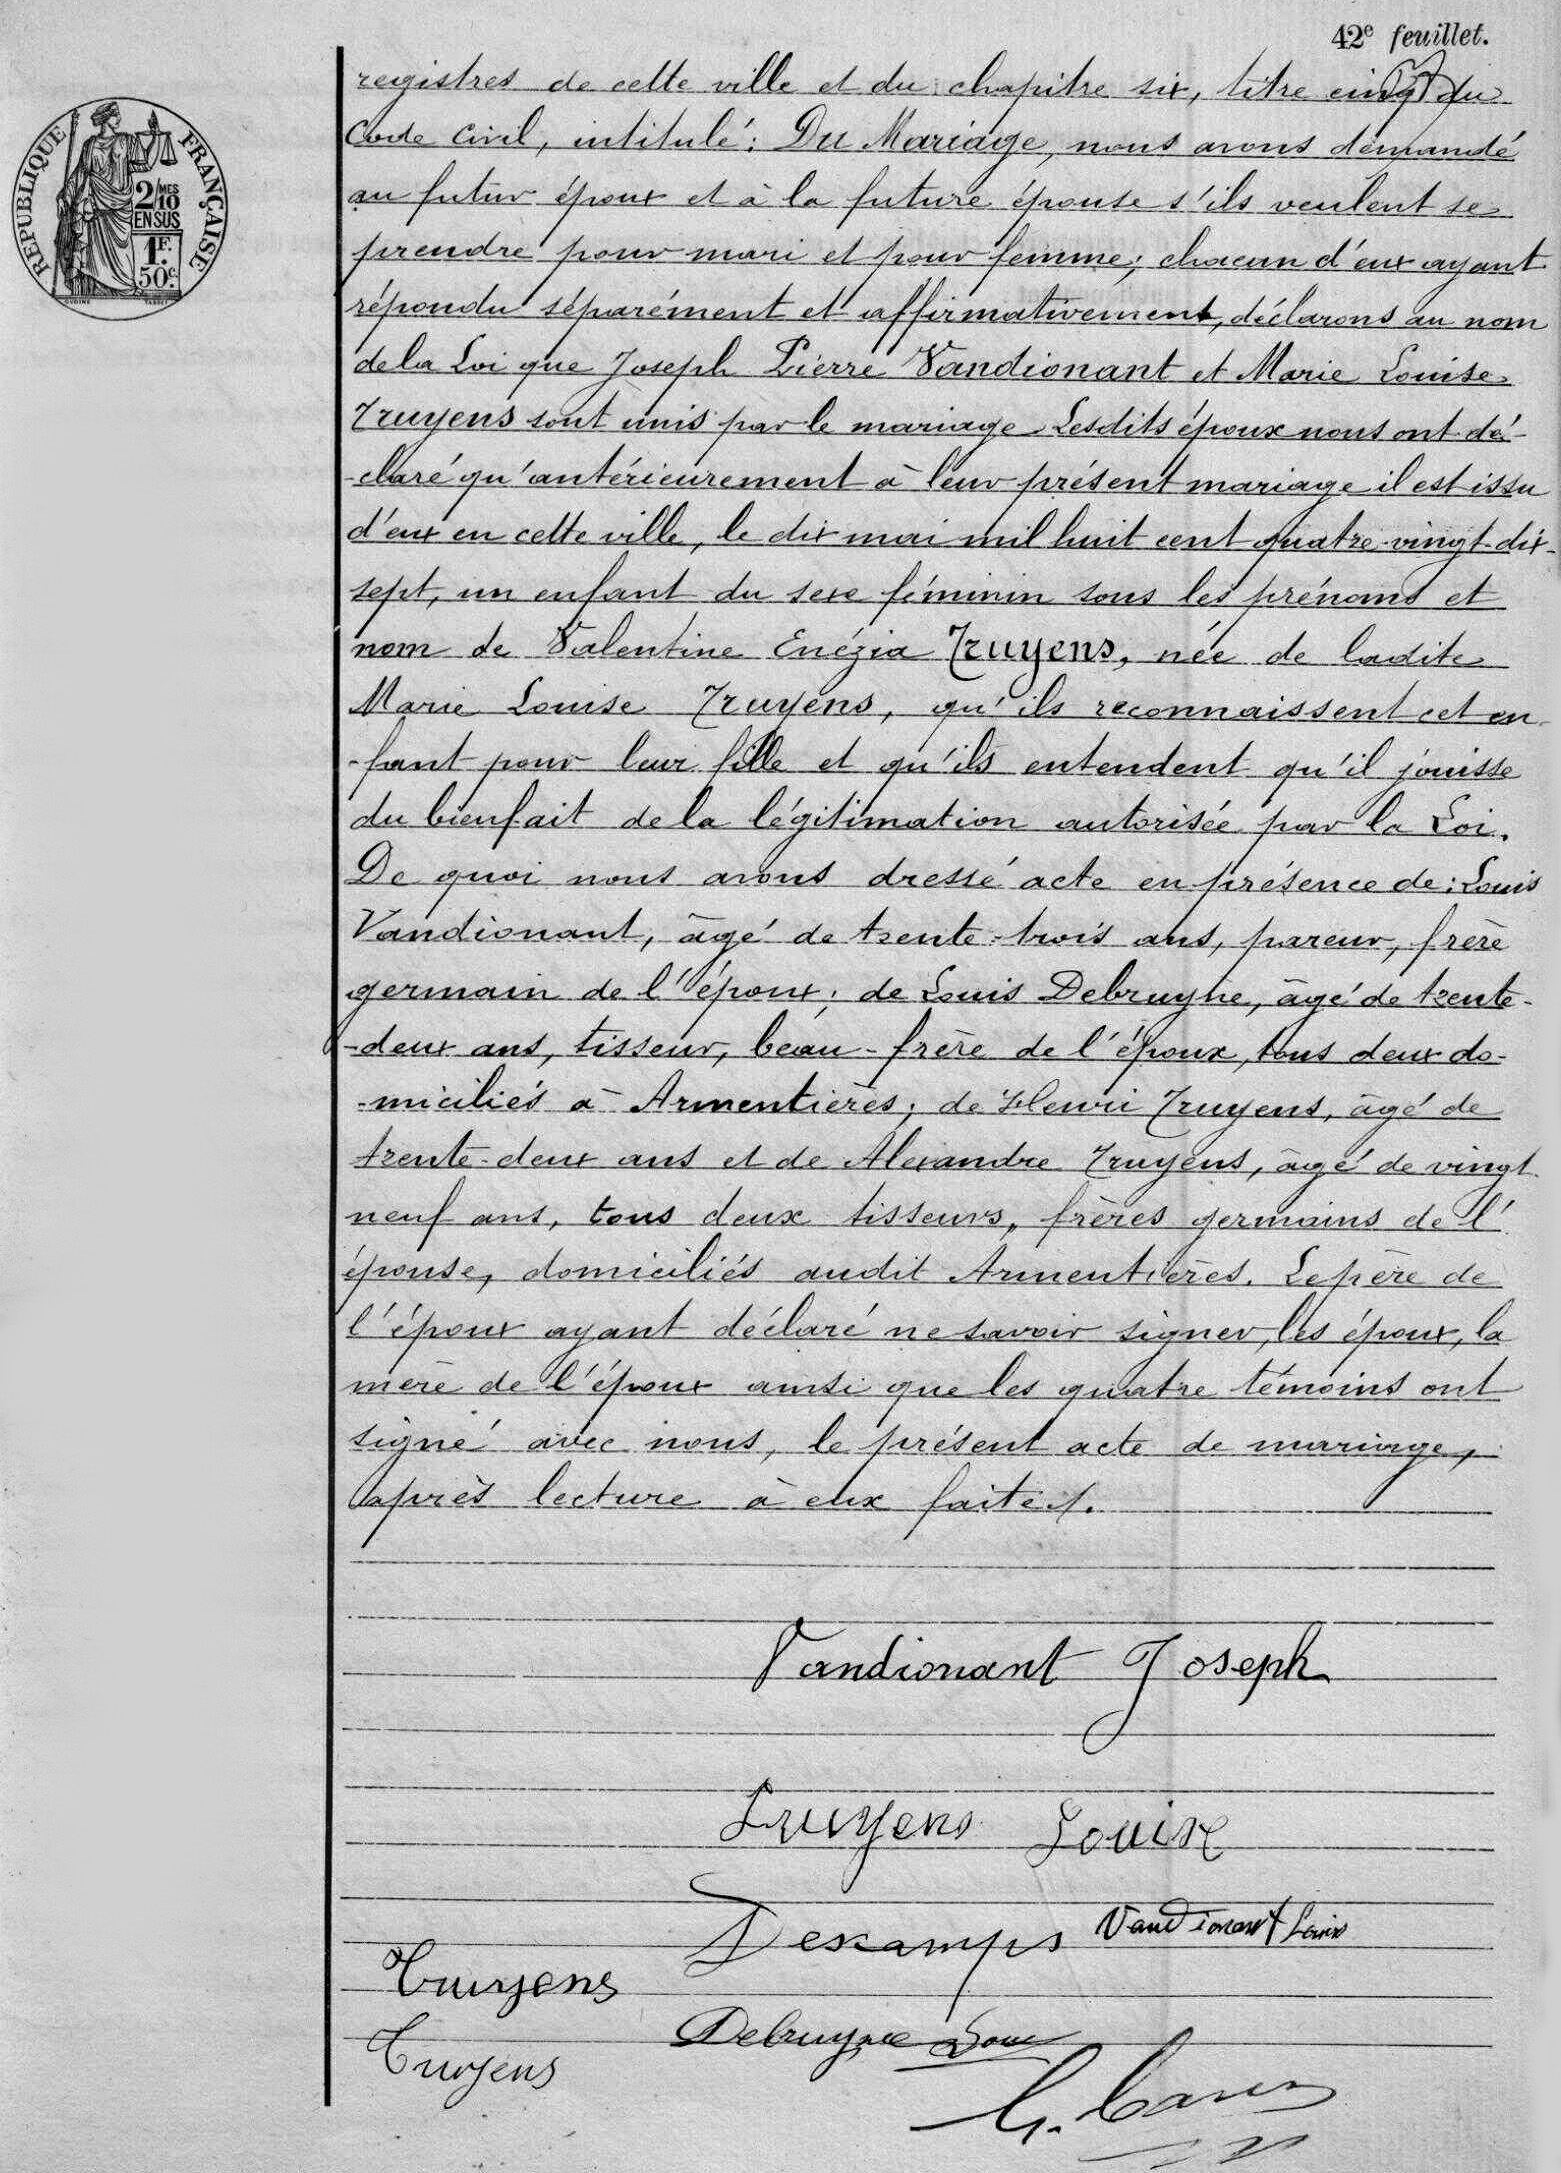 42e feuillet.
RÉPUBLIQUE FRANÇAISE
2/MES
10
EN SUS
1F.
50c.
registres de cette ville et du chapitre six, titre cinq du
Code Civil, intitulé: Du Mariage, nous avons demandé
au futur époux et à la future épouse s'ils veulent se
prendre pour mari et pour femme; chacun d'eux ayant
répondu séparément et affirmativement, déclarons au nom
de la Loi que Joseph Pierre Vandionant et Marie Louise
Truyens sont unis par le mariage. Lesdits époux nous ont dé-
-claré qu'antérieurement à leur présent mariage il est issu
d'eux en cette ville, le dix mai mil huit cent quatre-vingt-dix-
sept, un enfant du sexe féminin sous les prénoms et
nom de Valentine Enézia Truyens, née de ladite
Marie Louise Truyens, qu'ils reconnaissent cet en-
-fant pour leur fille et qu'ils entendent qu'il jouisse
du bienfait de la légitimation autorisée par la Loi.
De quoi nous avons dressé acte en présence de: Louis
Vandionant, âgé de trente-trois ans, pareur, frère
germain de l'époux; de Louis Debruyne, âgé de trente-
-deux ans, tisseur, beau-frère de l'époux, tous deux do-
-miciliés à Armentières; de Henri Truyens, âgé de
trente-deux ans et de Alexandre Truyens, âgé de vingt-
neuf ans, tous deux tisseurs, frères germains de l'
épouse, domiciliés audit Armentières. Le père de
l'époux ayant déclaré ne savoir signer, les époux, la
mère de l'époux ainsi que les quatre témoins ont
signé avec nous, le présent acte de mariage,
après lecture à eux faite./.
Vandionant Joseph
Truyens Louise
Descamps Vandionant Louis
Truyens
Debruyne Louis
Truyens